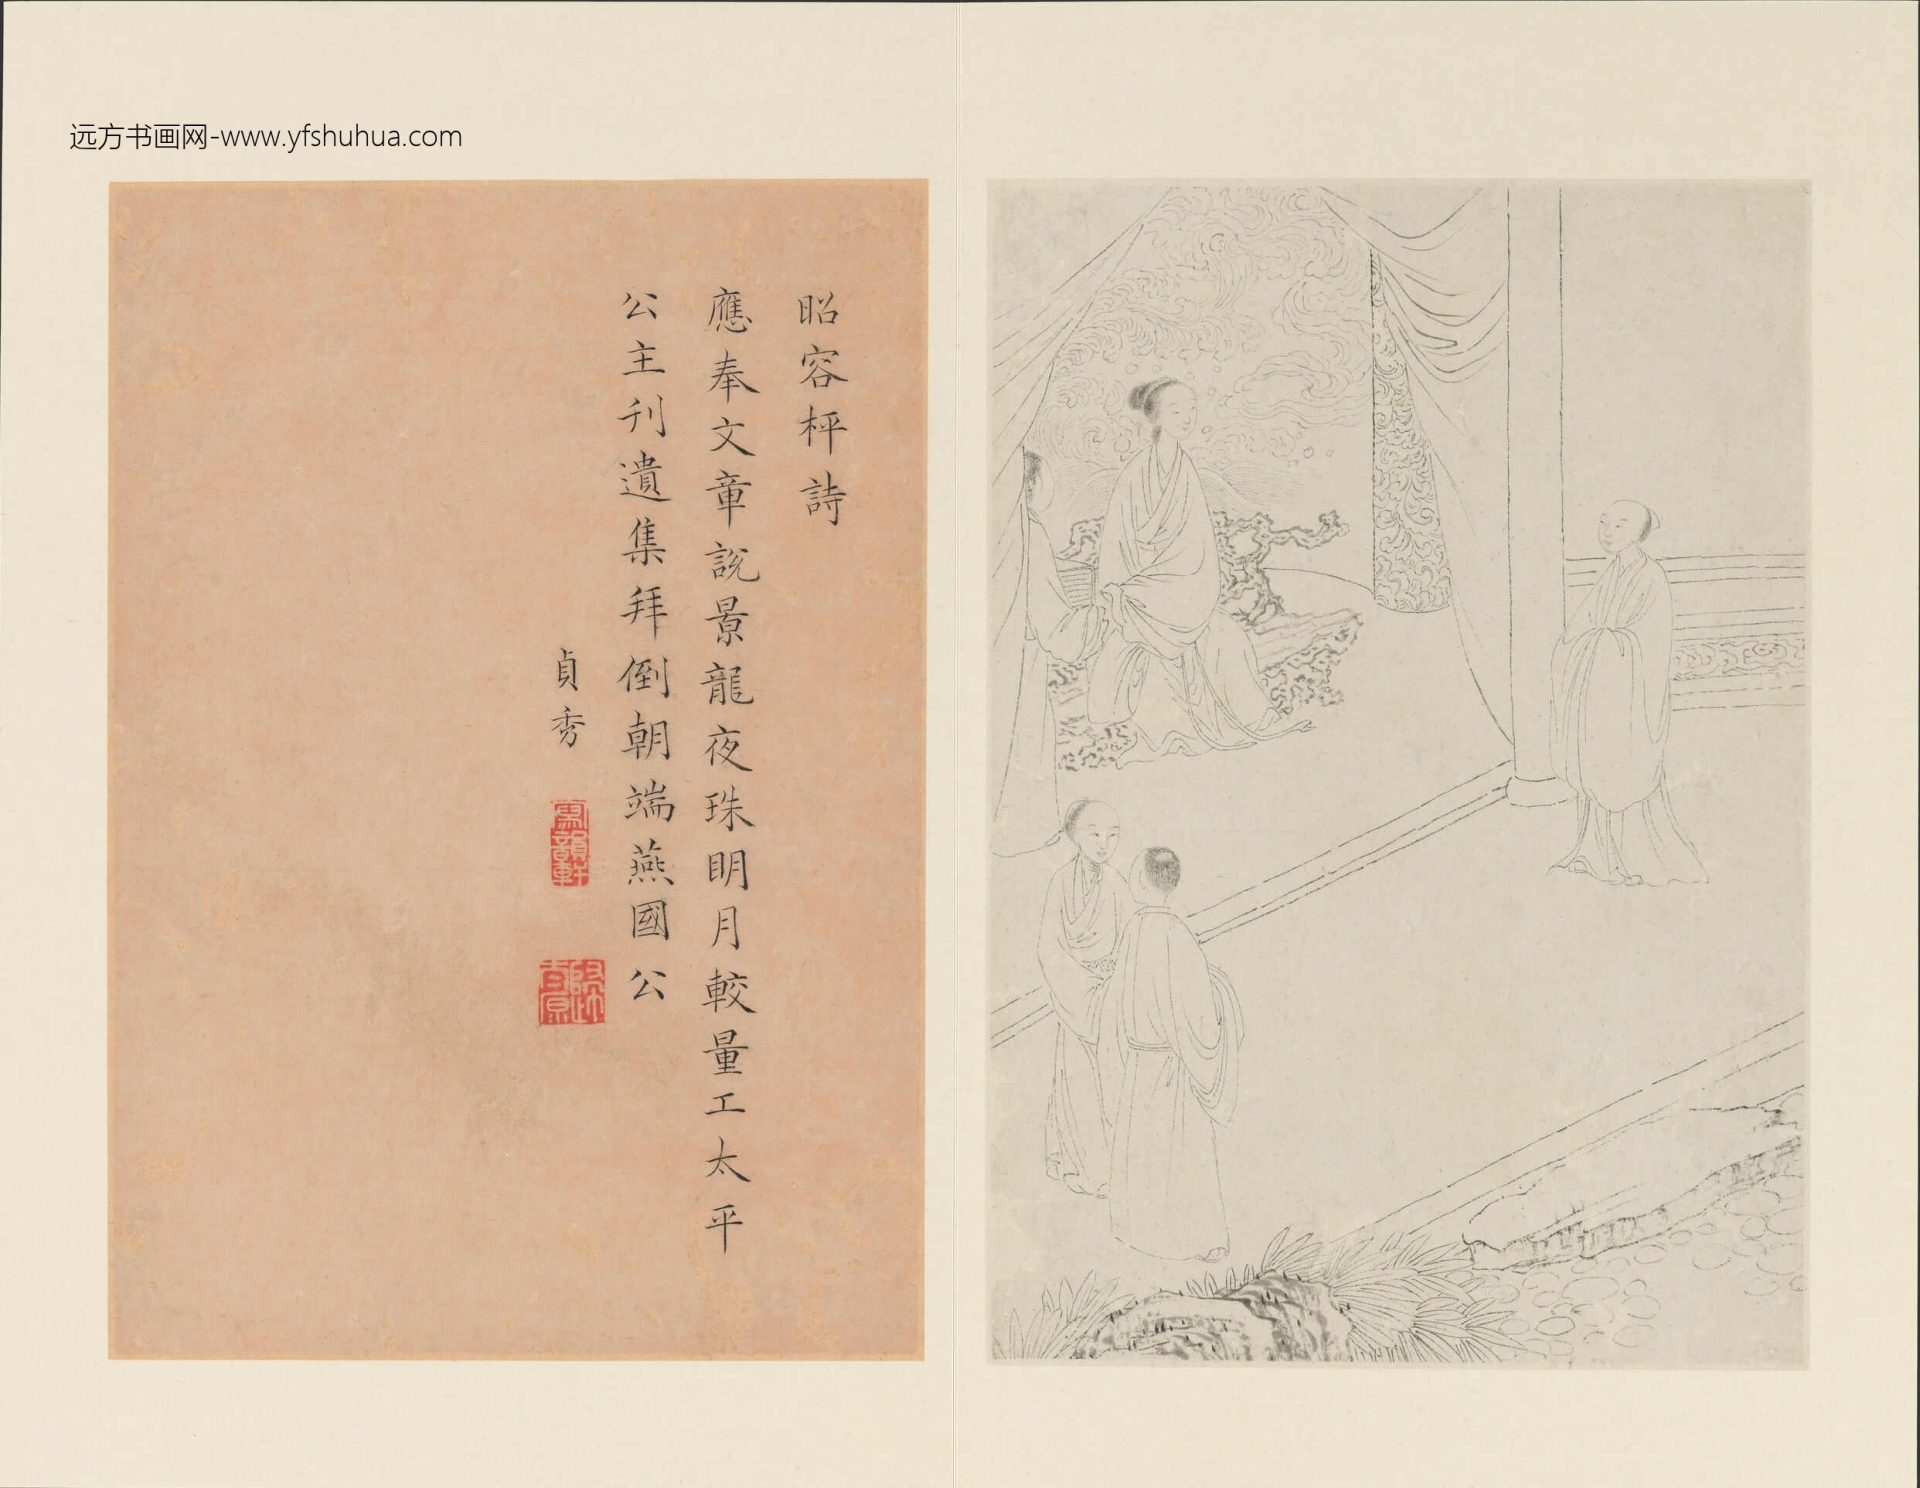 远方书画网-www.yfshuhua.com
昭容枰詩
應奉文章說景龍夜珠明月較量工太平
公主刊遺集拜倒朝端燕國公
貞秀